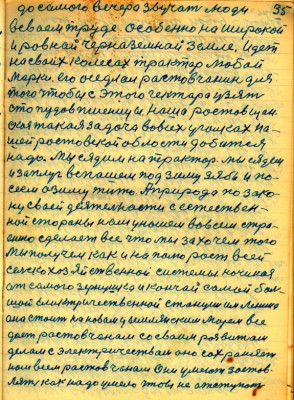 до самого вечера звучат люди 35
всваем труде. особенно на широкой
и ровной черназемной земле, идет
насваих колесах трактор любой
марки. его оседлал растовчанин для
того чтобы с этого гектара взят
сто пудов пшеницы. наша ростовщан
ская такая задача вовсех уголках на
шей ростовской области добится
надо. Мы сядим на трактор. мы сядем
и заплуг вспашем под зиму зябь и по
сеем озиму жито. Априрода по зако
ну сваей деятельности с естествен
ной стороны нам унашем вовсем стра
енно сделает все что мы захочем того
мы получем как и на
рост всей
сельскохозяйственной системы начиная
от самого зернушка и кончай самой бол
шой електрической станции им Ленина
она стоит на
цимлянским морем все
дает растовчанам со сваем развитам
делам с электричеством
сохраняет
нам всем растовчанам Они умеют застов
лять как надо
этово не отступают